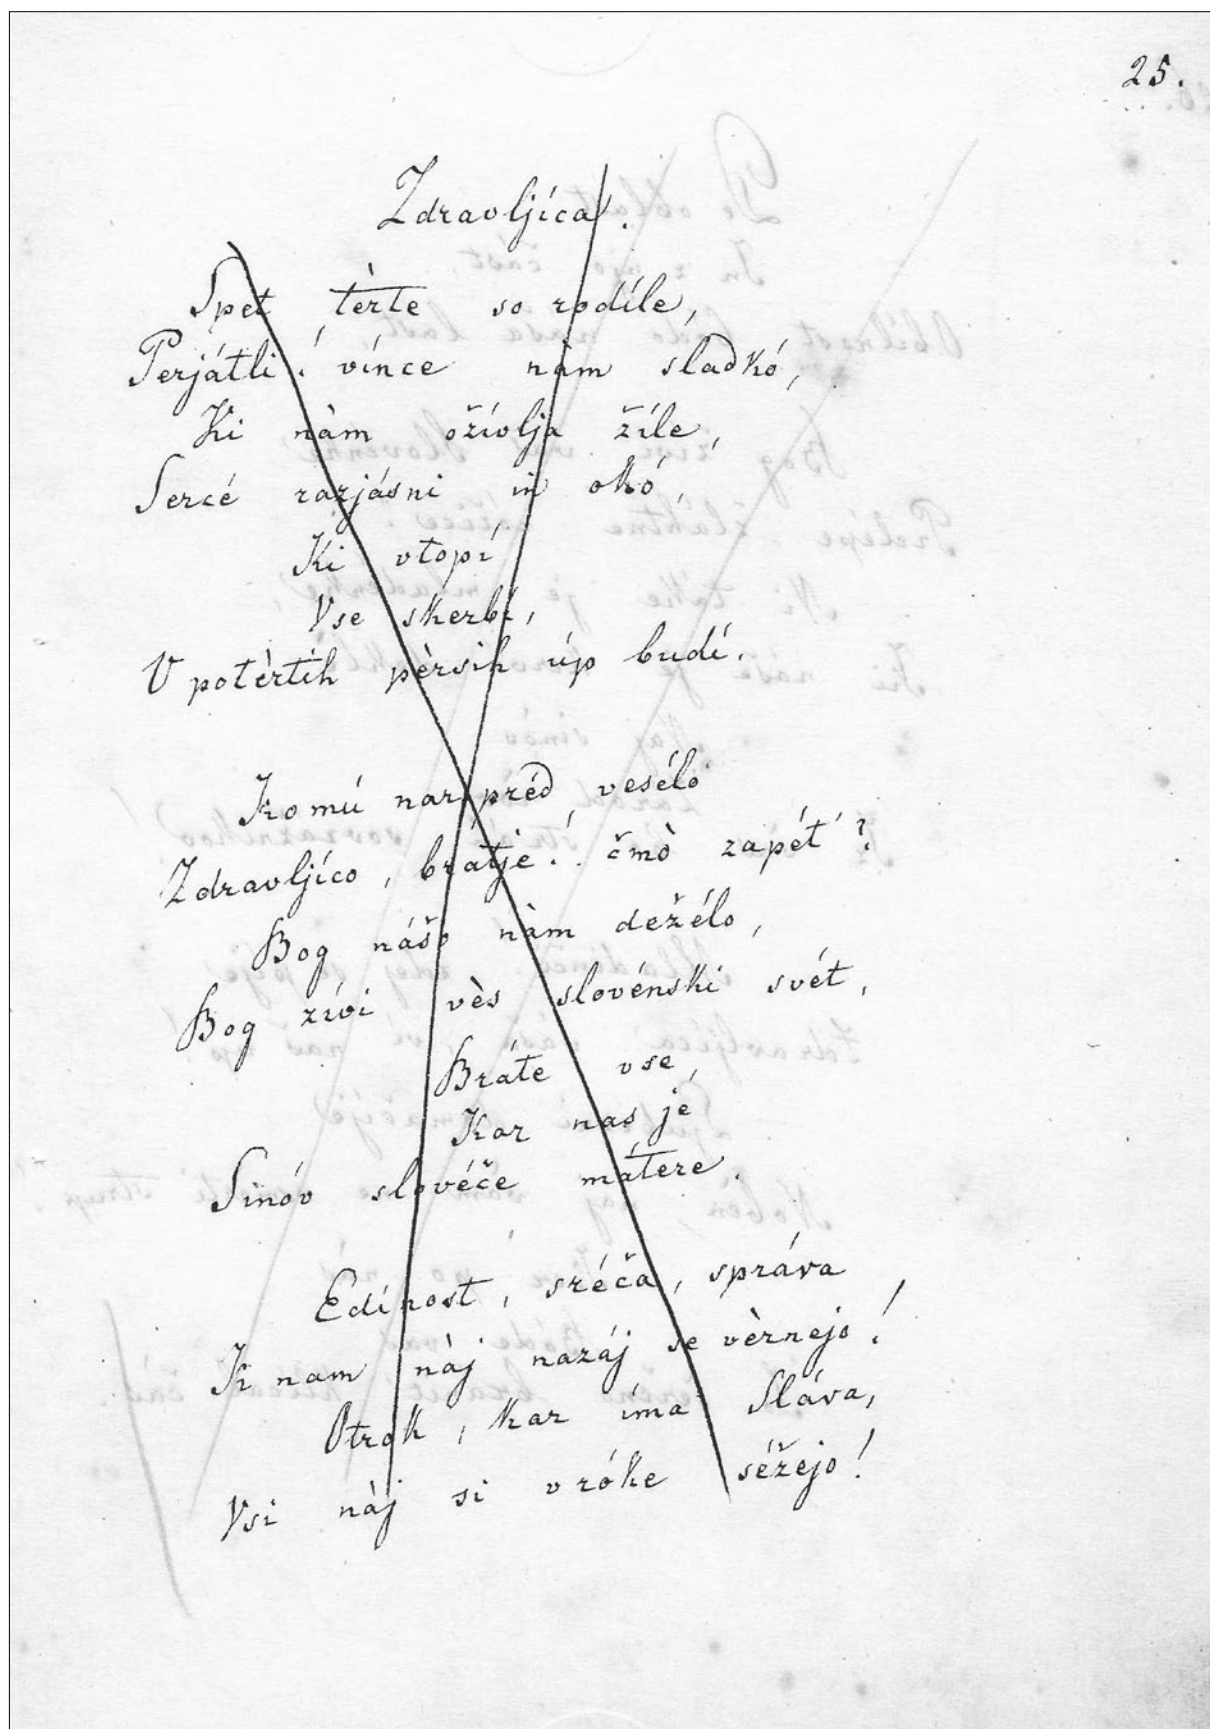 25.
Zdravljíca.
Spet tèrte so rodíle,
Perjátli! vínce nàm sladkó,
Ki nàm ožívlja žíle,
Sercé razjásni in okó,
Ki vtopí
Vse skerbí,
V potèrtih pèrsih úp budí.
Komú narpréd veselo
Zdravljíco, brátje! čmò zapét'?
Bog nášo nàm deželo,
Bog živi vès slovénski svét,
Bráte vse,
Kar nas je
Sinóv slovéče mátere.
Edínost, sréča, správa
K nam nàj nazáj se vèrnejo!
Otrok, kar íma Sláva,
Vsi nàj si v róke séžejo!